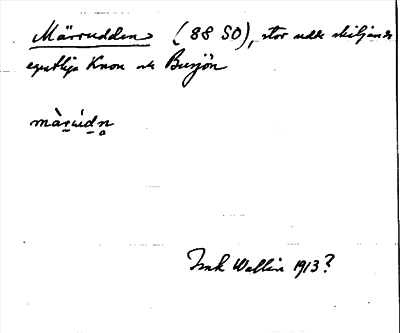 Märrudden (88 SO), stor udde skiljande
egentliga Knon och Busjön
màrúdn
Ink Wallin 1913?